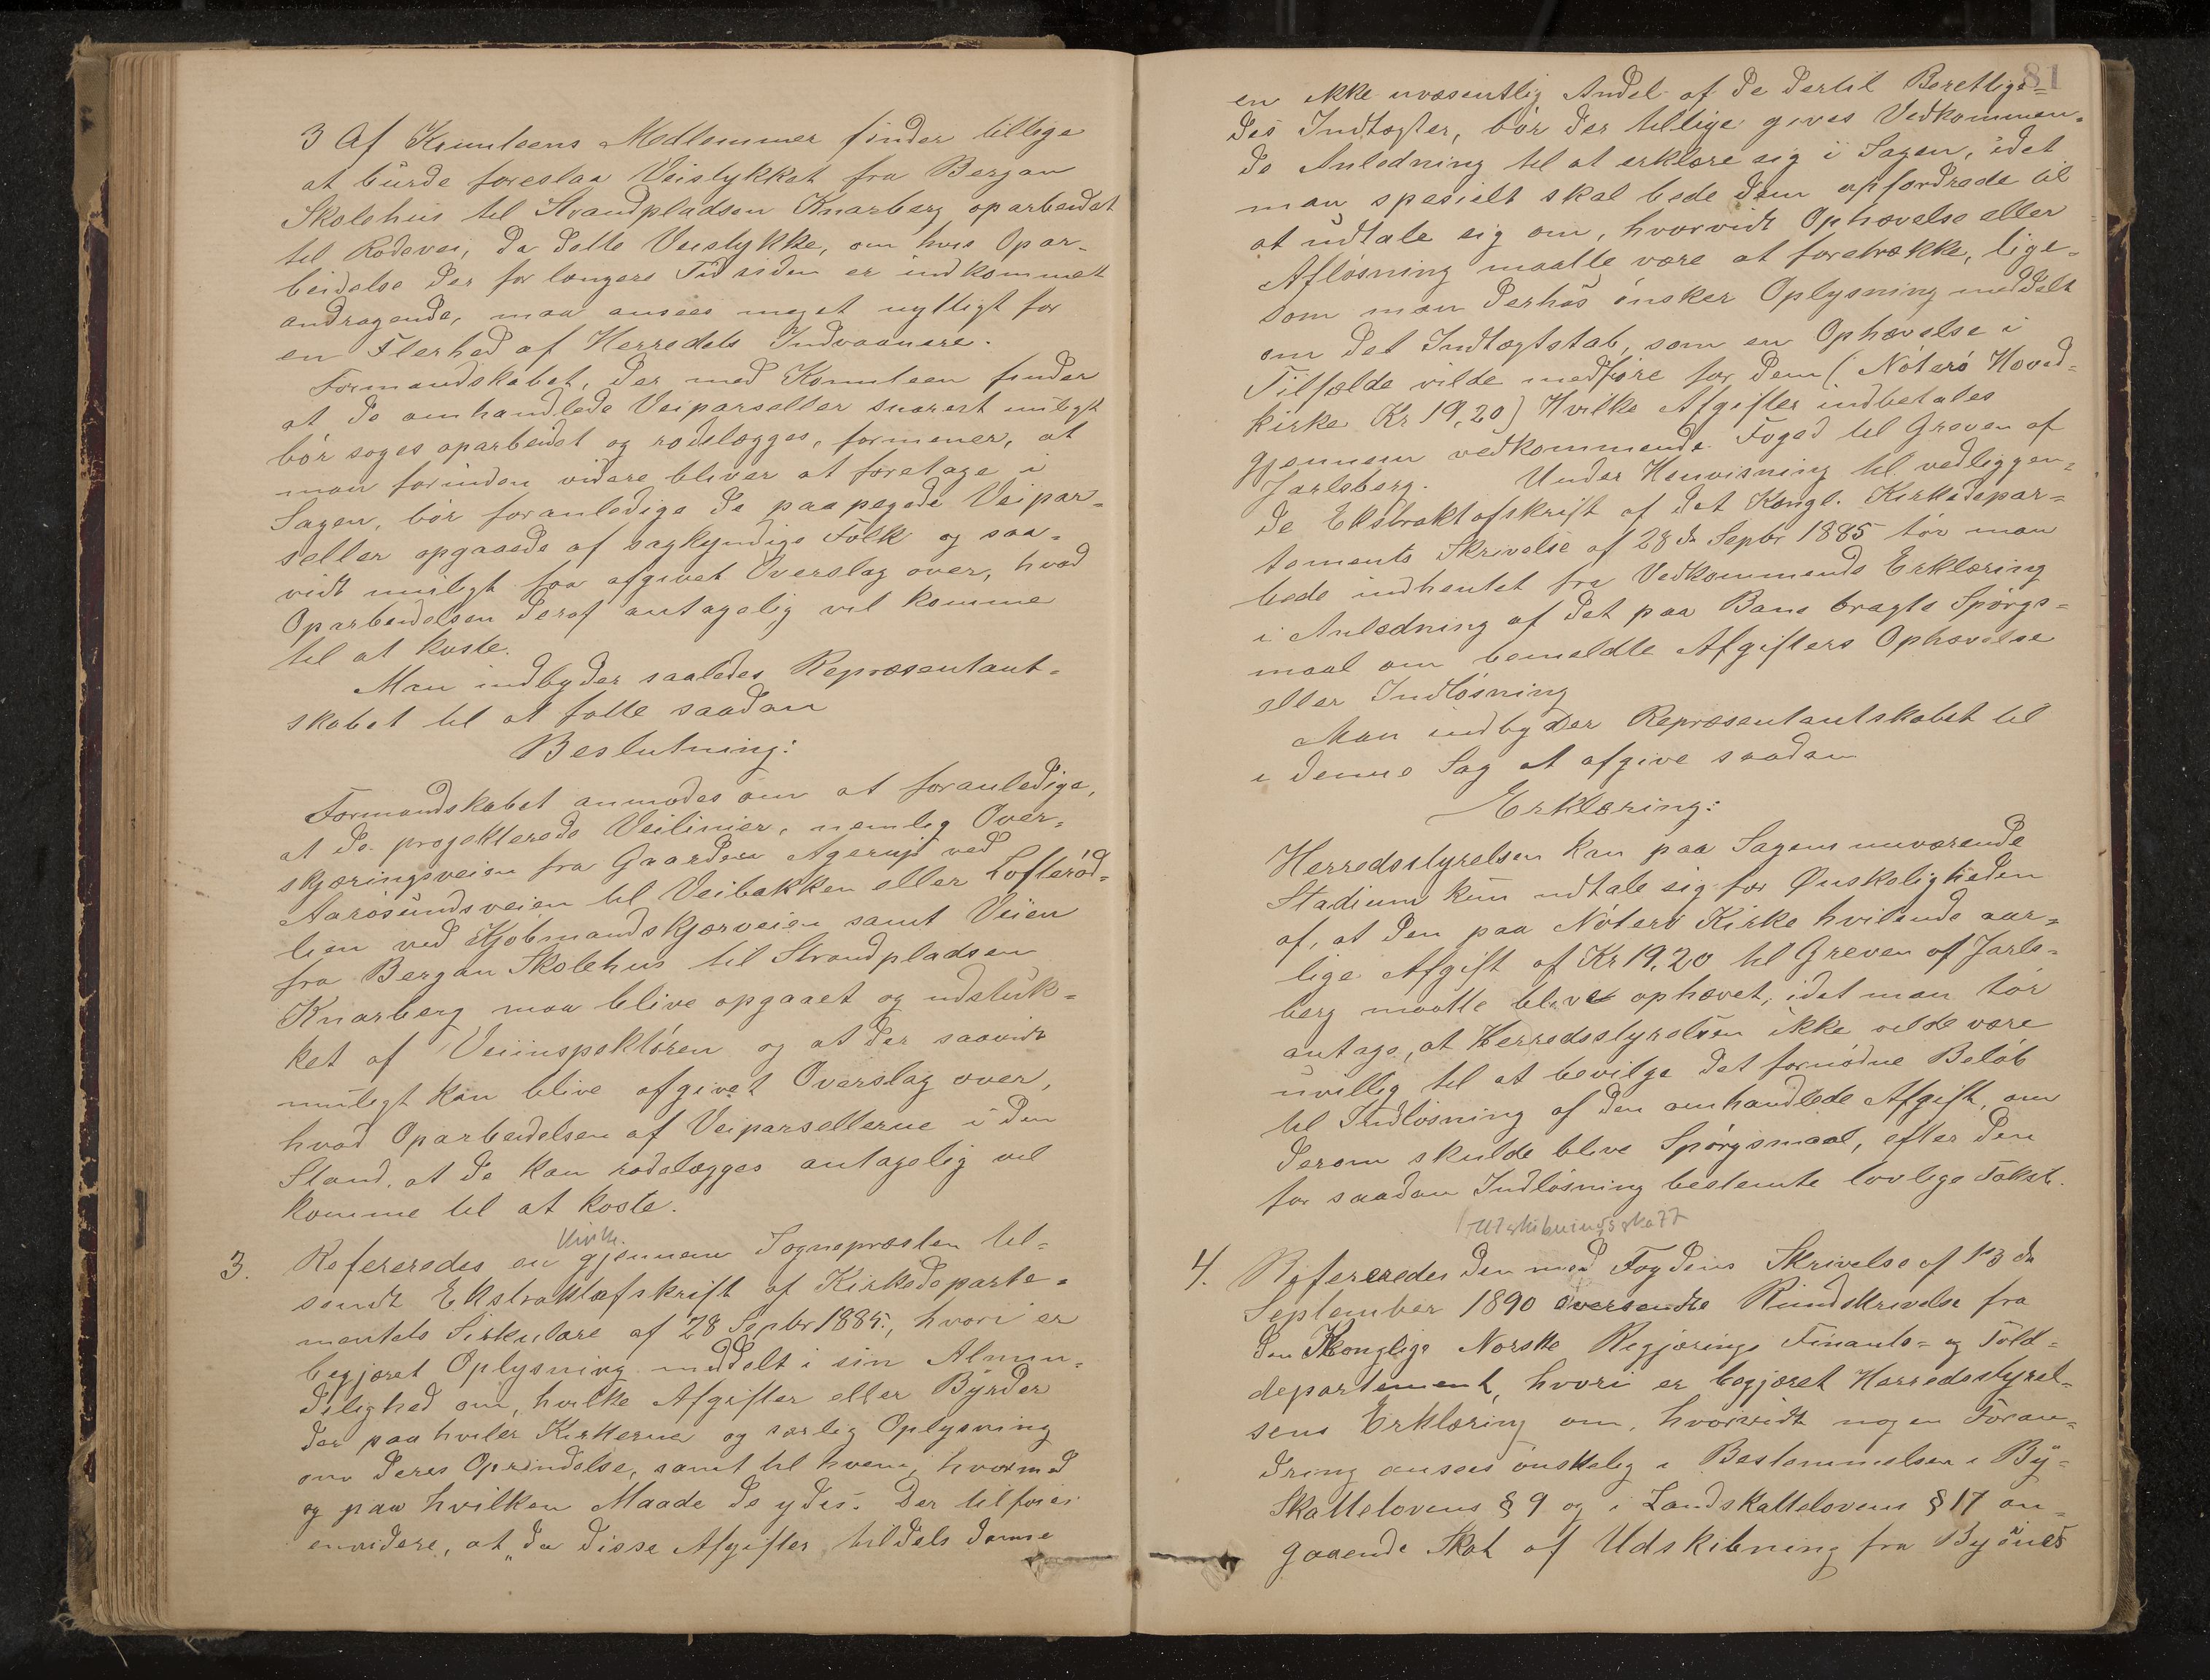 3 Af Komiteens Medlemmer finder tillige
at burde foreslaa Veistykket fra Bergan
Skolehus til Strandpladsen Knarberg oparbeidet
til Rodevei, da dette Veistykke, om hvis Opar-
beidelse der for længere Tid siden er indkommet
andragende, maa ansees meget nyttigt for
en Flerhed af Herredets Indvaanere.
Formandskabet, der med Komiteen finder
at de omhandlede Veiparseller snarest muligt
bör söges oparbeidet og rodelægges, formener, at
man forinden videre bliver at foretage i
Sagen, bör foranledige de paapegede Veipar-
seller opgaaede af sagkyndige Folk og saa-
vidt muligt faa afgivet Overslag over, hvad
Oparbeidelsen deraf antagelig vil komme
til at koste.
Man indbyder saaledes Repræsentant-
skabet til at fatte saadan
Beslutning:
Formandskabet anmodes om at foranledige,
at de projekterede Veilinier, nemlig Over-
skjæringsveien fra Gaarden Agerup ved
Aarösundsveien til Veibakken eller Lofteröd-
lien ved Kjöbmandskjærveien samt Veien
fra Bergan Skolehus til Strandpladsen
Knarberg maa blive opgaaet og udstuk-
ket af Veiinspektören og at der saavidt
muligt kan blive afgivet Overslag over,
hvad Oparbeidelsen af Veiparsellerne i den
Stand, at de kan rodelægges antagelig vil
komme til at koste.
Kirke.
3. Refereredes en gjennem Sognepresten til-
sendt Ekstraktafskrift af Kirkedeparte-
mentets Sirkulære af 28 Septbr 1885, hvori er
begjæret Oplysning meddelt i sin Almin-
delighed om, hvilke Afgifter eller Byrder
der paahviler Kirkerne og særlig Oplysning
om deres Oprindelse, samt til hvem, hvormed
og paa hvilken Maade de ydes. Der tilföies
envidere, at "da disse Afgifter tildels danne
81
en ikke uvæsentlig Andel af de dertil Berettige-
des Indtægter, bör der tillige gives Vedkommen-
de Anledning til at erklære sig i Sagen, idet
man spesielt skal bede dem opfordrede til
at udtale sig om, hvorvidt Ophævelse eller
Aflösning maatte være at foretrække, lige-
som man derhos önsker Oplysning meddelt
om det Indtægtstab, som en Ophævelse i
Tilfælde vilde medföre for dem (Nöterö Hoved-
kirke Kr 19,20) Hvilke Afgifter indbetales
gjennem vedkommende Foged til Greven af
Jarlsberg. Under Henvisning til vedliggen-
de Ekstraktafskrift af det Kongl. Kirkedepar-
tements Skrivelse af 28de Septbr 1885 tör man
bede indhentet fra Vedkommende Erklæring
i Anledning af det paa Bane bragte Spörgs-
maal om bemeldte Afgifters Ophævelse
eller Indlösning
Man indbyder Repræsentantskabet til
i denne Sag at afgive saadan
Erklæring:
Herredsstyrelsen kan paa Sagens nuværende
Stadium kun udtale sig for Ønskeligheden
af, at den paa Nöterö Kirke hvilende aar-
lige Afgift af Kr 19,20 til Greven af Jarls-
berg maatte blive ophævet, idet man tör
antage, at Herredsstyrelsen ikke vilde være
uvillig til at bevilge det fornödne Belöb
til Indlösning af den omhandlede Afgift, om
derom skulde blive Spörgsmaal, efter den
for saadan Indlösning bestemte lovlige Takst.
Utskibningsskatt
4. Refereredes den med Fogdens Skrivelse af 13de
September 1890 oversendte Rundskrivelse fra
den Kongelige Norske Regjerings Finants- og Told-
departement, hvori er begjæret Herredsstyrel-
sens Erklæring om, hvorvidt nogen Foran-
dring ansees önskelig i Bestemmelsen i By-
Skattelovens § 9 og i Landskattelovens § 17 an-
gaaende Skat af Udskibning fra Byernes